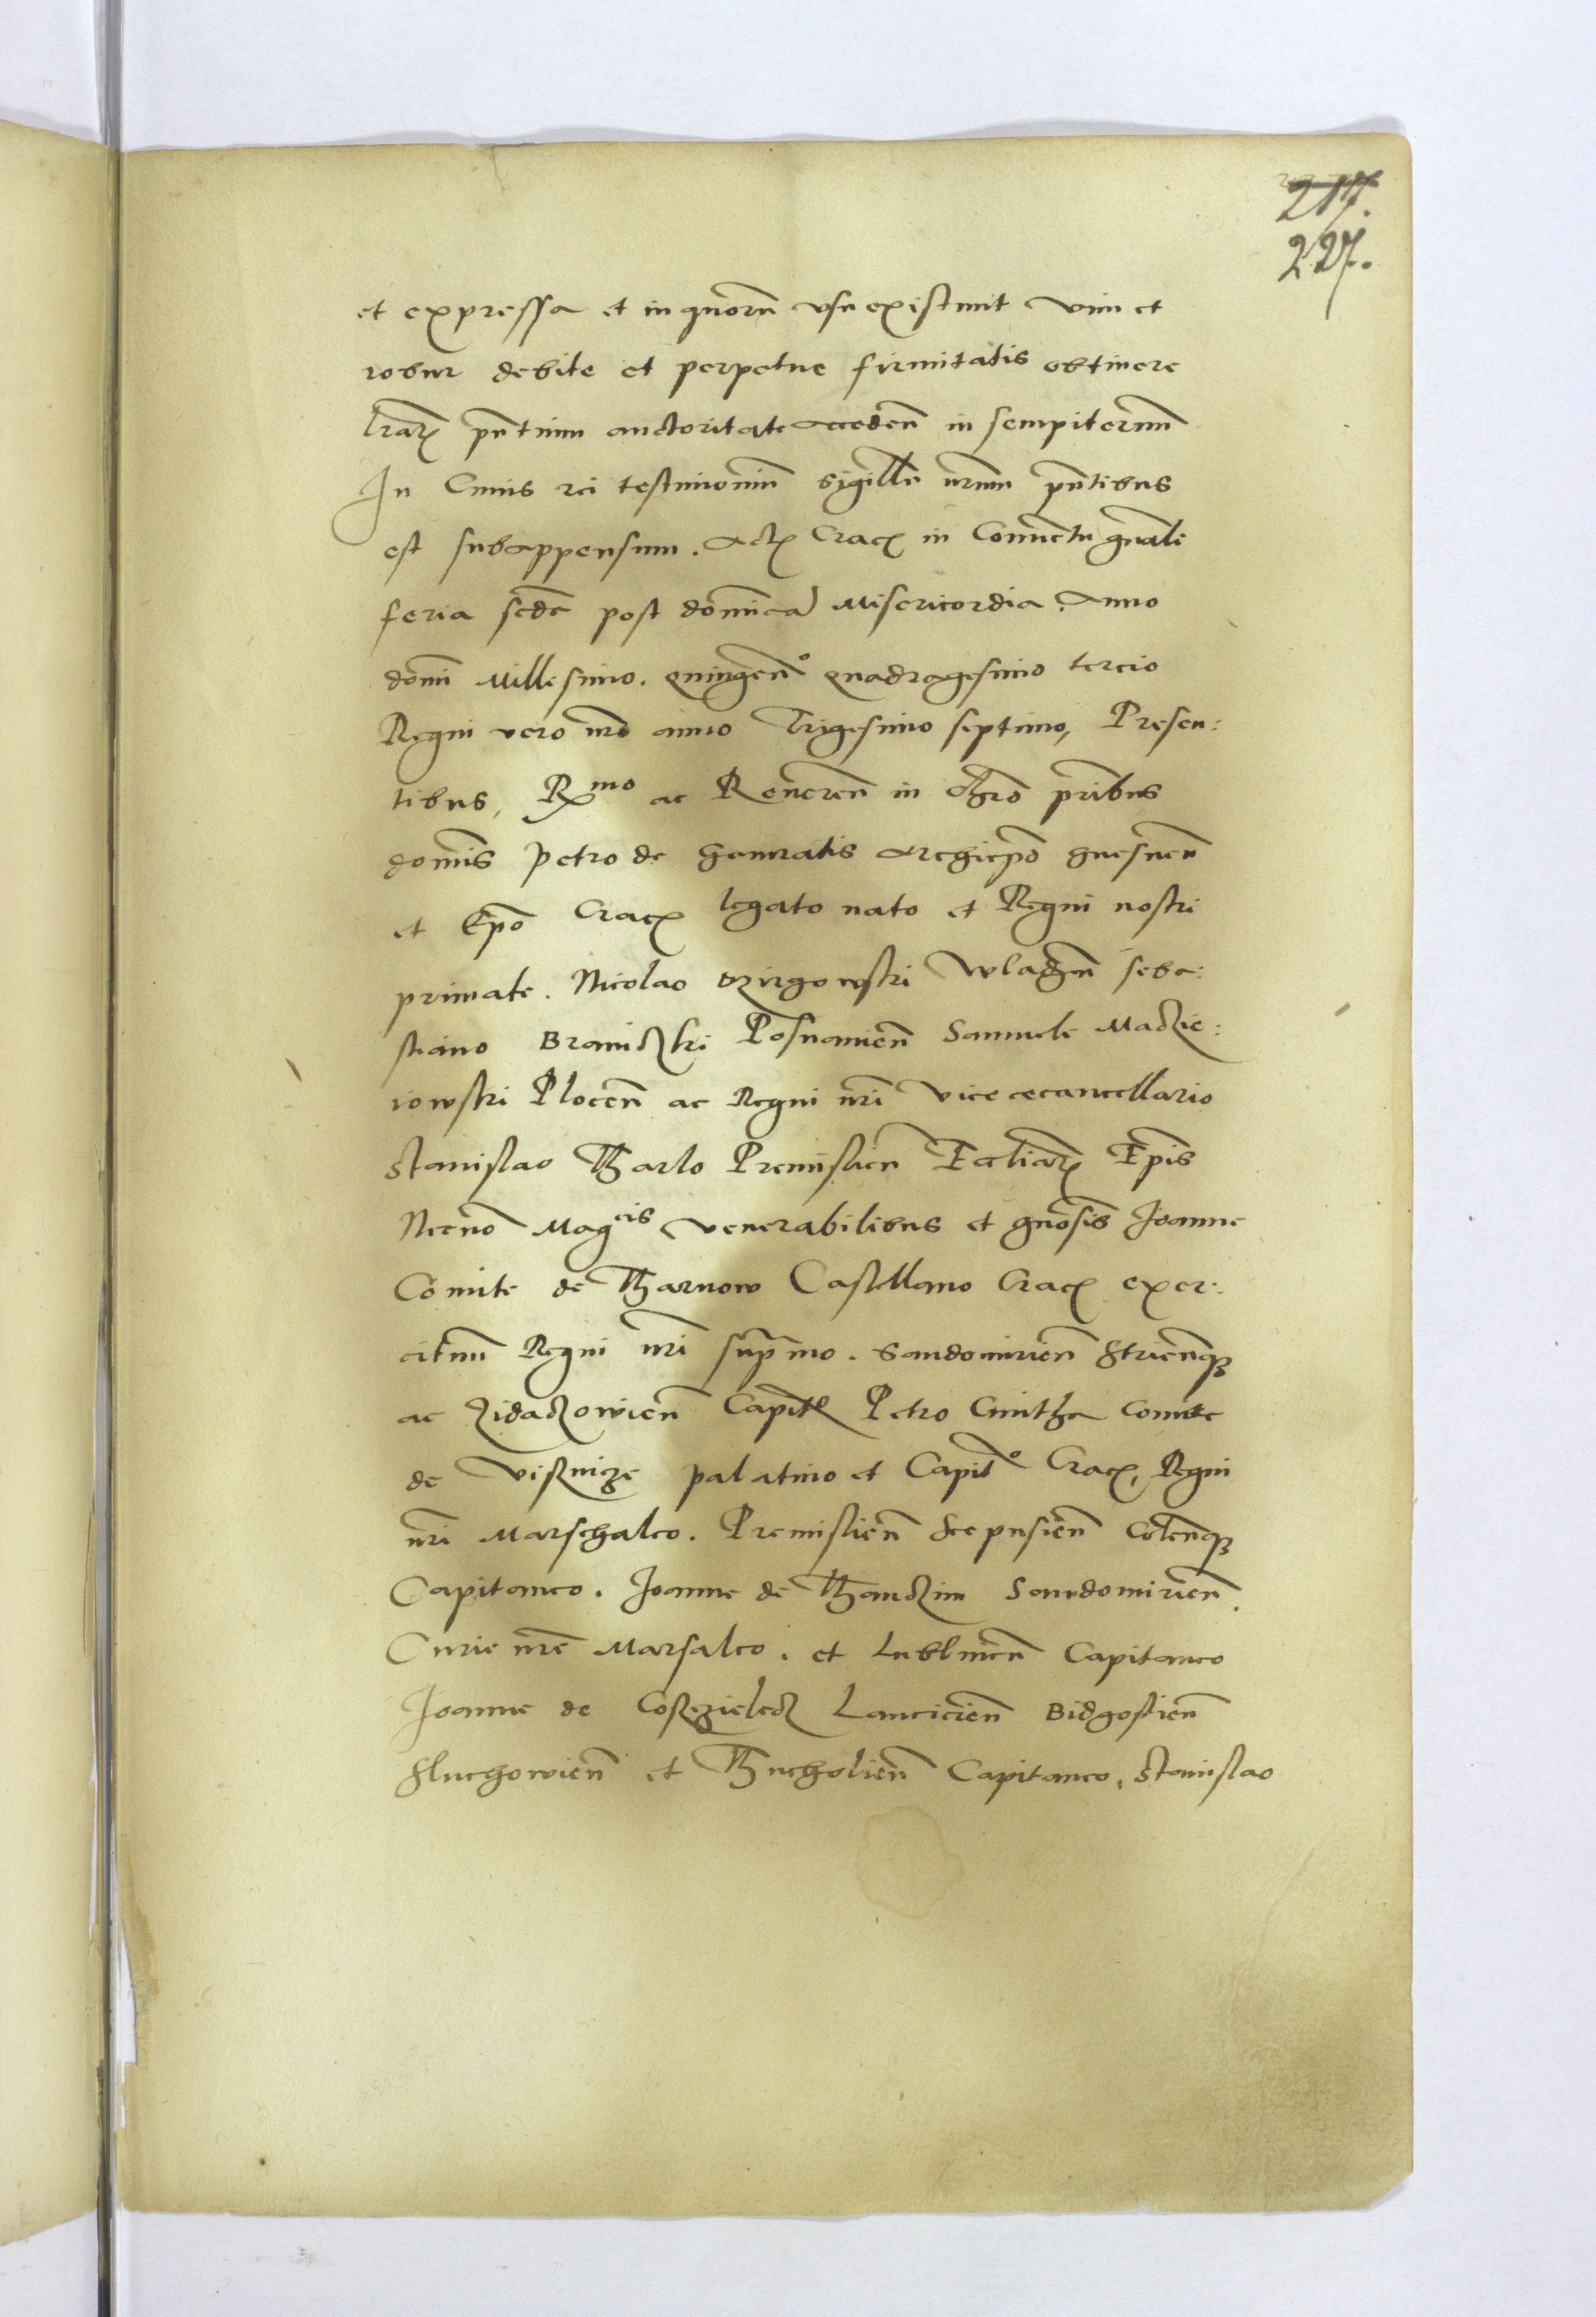 217.
227.
et expressa et in quorũ usu existunt vim et
robur debite et perpetue firmitatis obtinere
lrar̃ pñtium auctoritate deceden̄ in sempiternũ
In Cuius rei testimoniũ sigillũ nr̃um pñtibus
est subappensum. Act Crac in Conuentu gñali
feria scđa post dominicã Misericordia. Anno
dom̃i Millesimo. quingen̄º quadragesimo tercio
Regni vero nr̃o anno Trigesimo septimo, Presen:
tibus, Rmo ac Reueren̄ in Chr̃o pr̃ibus
domĩs Petro de Gamratis Archiep̃o gnesnen̄
et Ep̃o Crac legato nato et Regni nostri
primate. Nicolao Dzirgowski Wladẽn seba:
stiano Braniczki Posnanien̄ Samuele Maczie:
iowski Plocen̄ ac Regni nr̃i vicececancellario
Stanislao Tharlo Premislien̄ Eccliar̃ Ep̃is
Necnõ Magcis venerabilibus et gñosis Joanne
Comite de Tharnow Castellano Crac exer:
cituũ Regni nr̃i sup̃mo. Sandomirien̄ Strien̄q3
ac Zidaczowien̄ Capit̃ Petro Cmitha Comite
de Visznicze palatino et Capitº Crac, Regni
nr̃i Marschalco. Premislien̄ Scepusien̄ Colen̄q3
Capitaneo. Joanne de Thanczin Sandomirien̄.
Curie nr̃e Marsalco. et Lublinen̄ Capitaneo
Joanne de Cosczielecz Lancicien̄ Bidgostien̄
Sluchowien̄ et Thucholien̄ Capitaneo, Stanislao